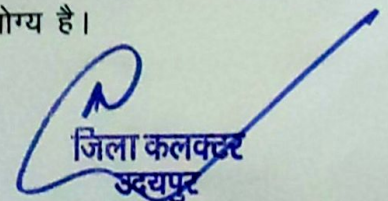 योग्य है।
जिला कलक्टर
उदयपुर